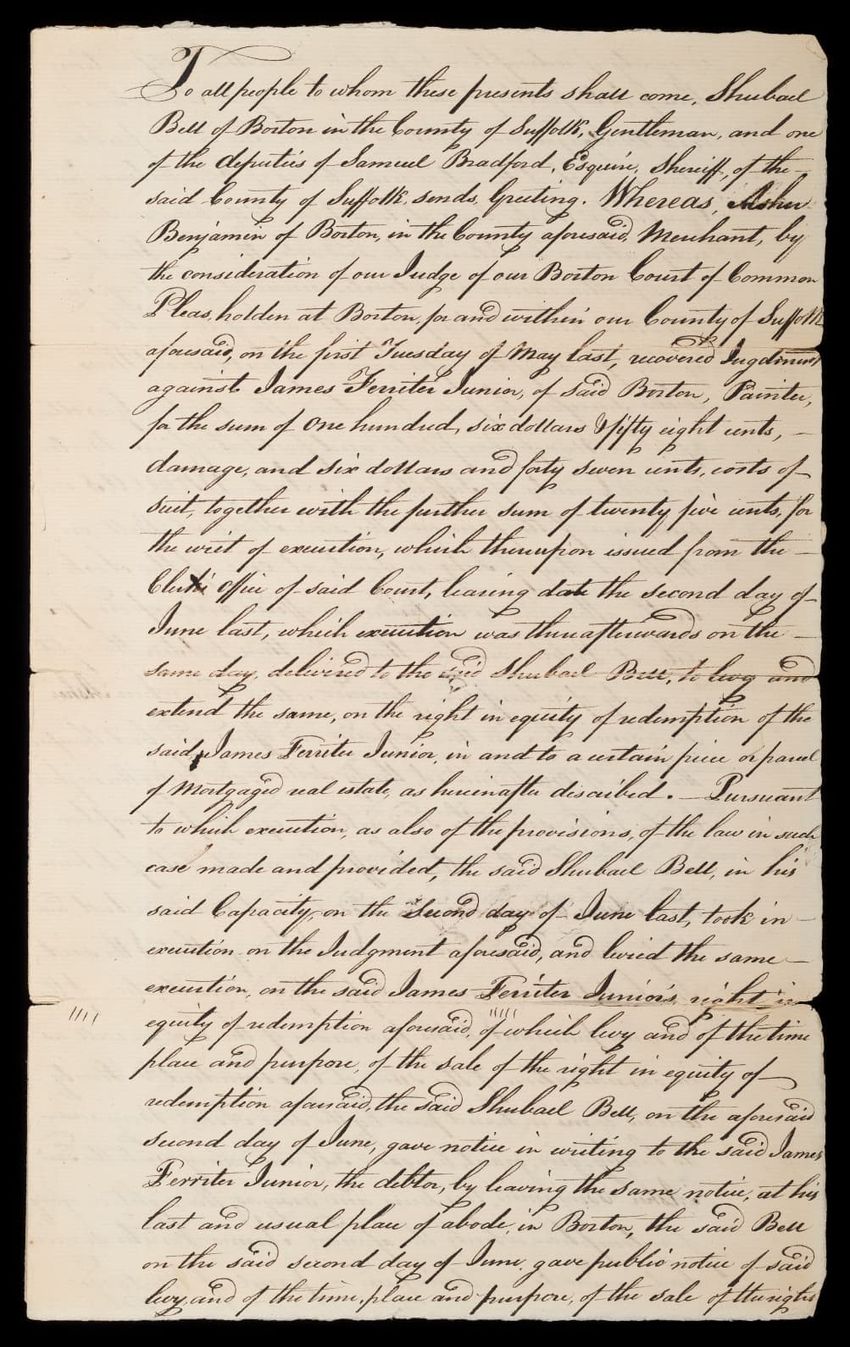 To all people to whom these presents shall come, Shubael
Bell of Boston in the County of Suffolk, Gentleman, and one
of the deputies of Samuel Bradford, Esquire, Sheriff, of the
said County of Suffolk, sends, Greeting. Whereas, Asher
Benjamin of Boston, in the County aforesaid, Merchant, by
the consideration of our Judge of our Boston Court of Common
Pleas, holden at Boston, for and within our County of Suffolk
aforesaid, on the first Tuesday of May last, recovered Jugdment
against James Ferriter Junior, of said Boston, Painter,
for the sum of One hundred, six dollars & fifty eight cents,
damage, and six dollars and forty seven cents, costs of
suit, together with the further sum of twenty five cents, for
the writ of execution, which thereupon issued from the
Clerks office of said Court, bearing date the second day of
June last, which execution was thereafterwards on the
same day, delivered to the said Shubael Bell, to levy and
extend the same, on the right in equity of redemption of the
said James Ferriter Junior, in and to a certain piece or parcel
of Mortgaged real estate, as hereinafter discribed. — Pursuant
to which execution, as also of the provisions, of the law in such
case made and provided, the said Shubael Bell, in his
said Capacity, on the second day of June last, took in
execution on the Judgment aforesaid, and levied the same
execution, on the said James Ferriter Junior's, right in
equity of redemption aforesaid, of which levy and of the time
place and purpose, of the sale of the right in equity of
redemption aforesaid, the said Shubael Bell, on the aforesaid
second day of June, gave notice in writing to the said James
Ferriter Junior, the debtor, by leaving the same notice, at his
last and usual place of abode, in Boston, the said Bell
on the said second day of June, gave public notice of said
levy, and of the time, place and purpose, of the sale of the right